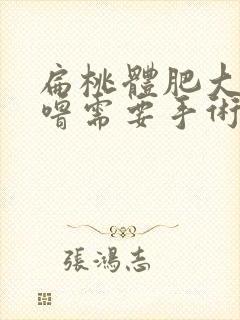 扁桃體肥大
嗗需要手術
張鴻志